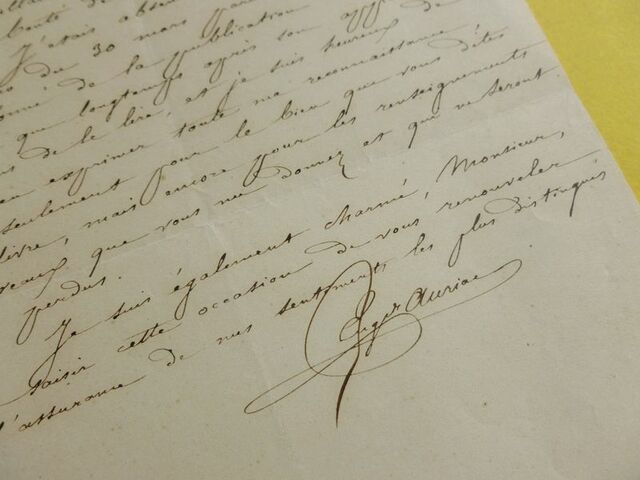 bonté de
J'étais absent
du 30 mars
de la publication
que longtemps après son
de le lire, et je suis heureux de
exprimer toute ma reconnaissance
seulement pour le bien que vous dites
livre, mais encore pour les renseignements
que vous me donnez et qui ne seront
perdus.
Je suis également charmé, Monsieur,
saisir cette occasion de vous renouveler
l'assurance de mes sentiments les plus distingués
Auriac